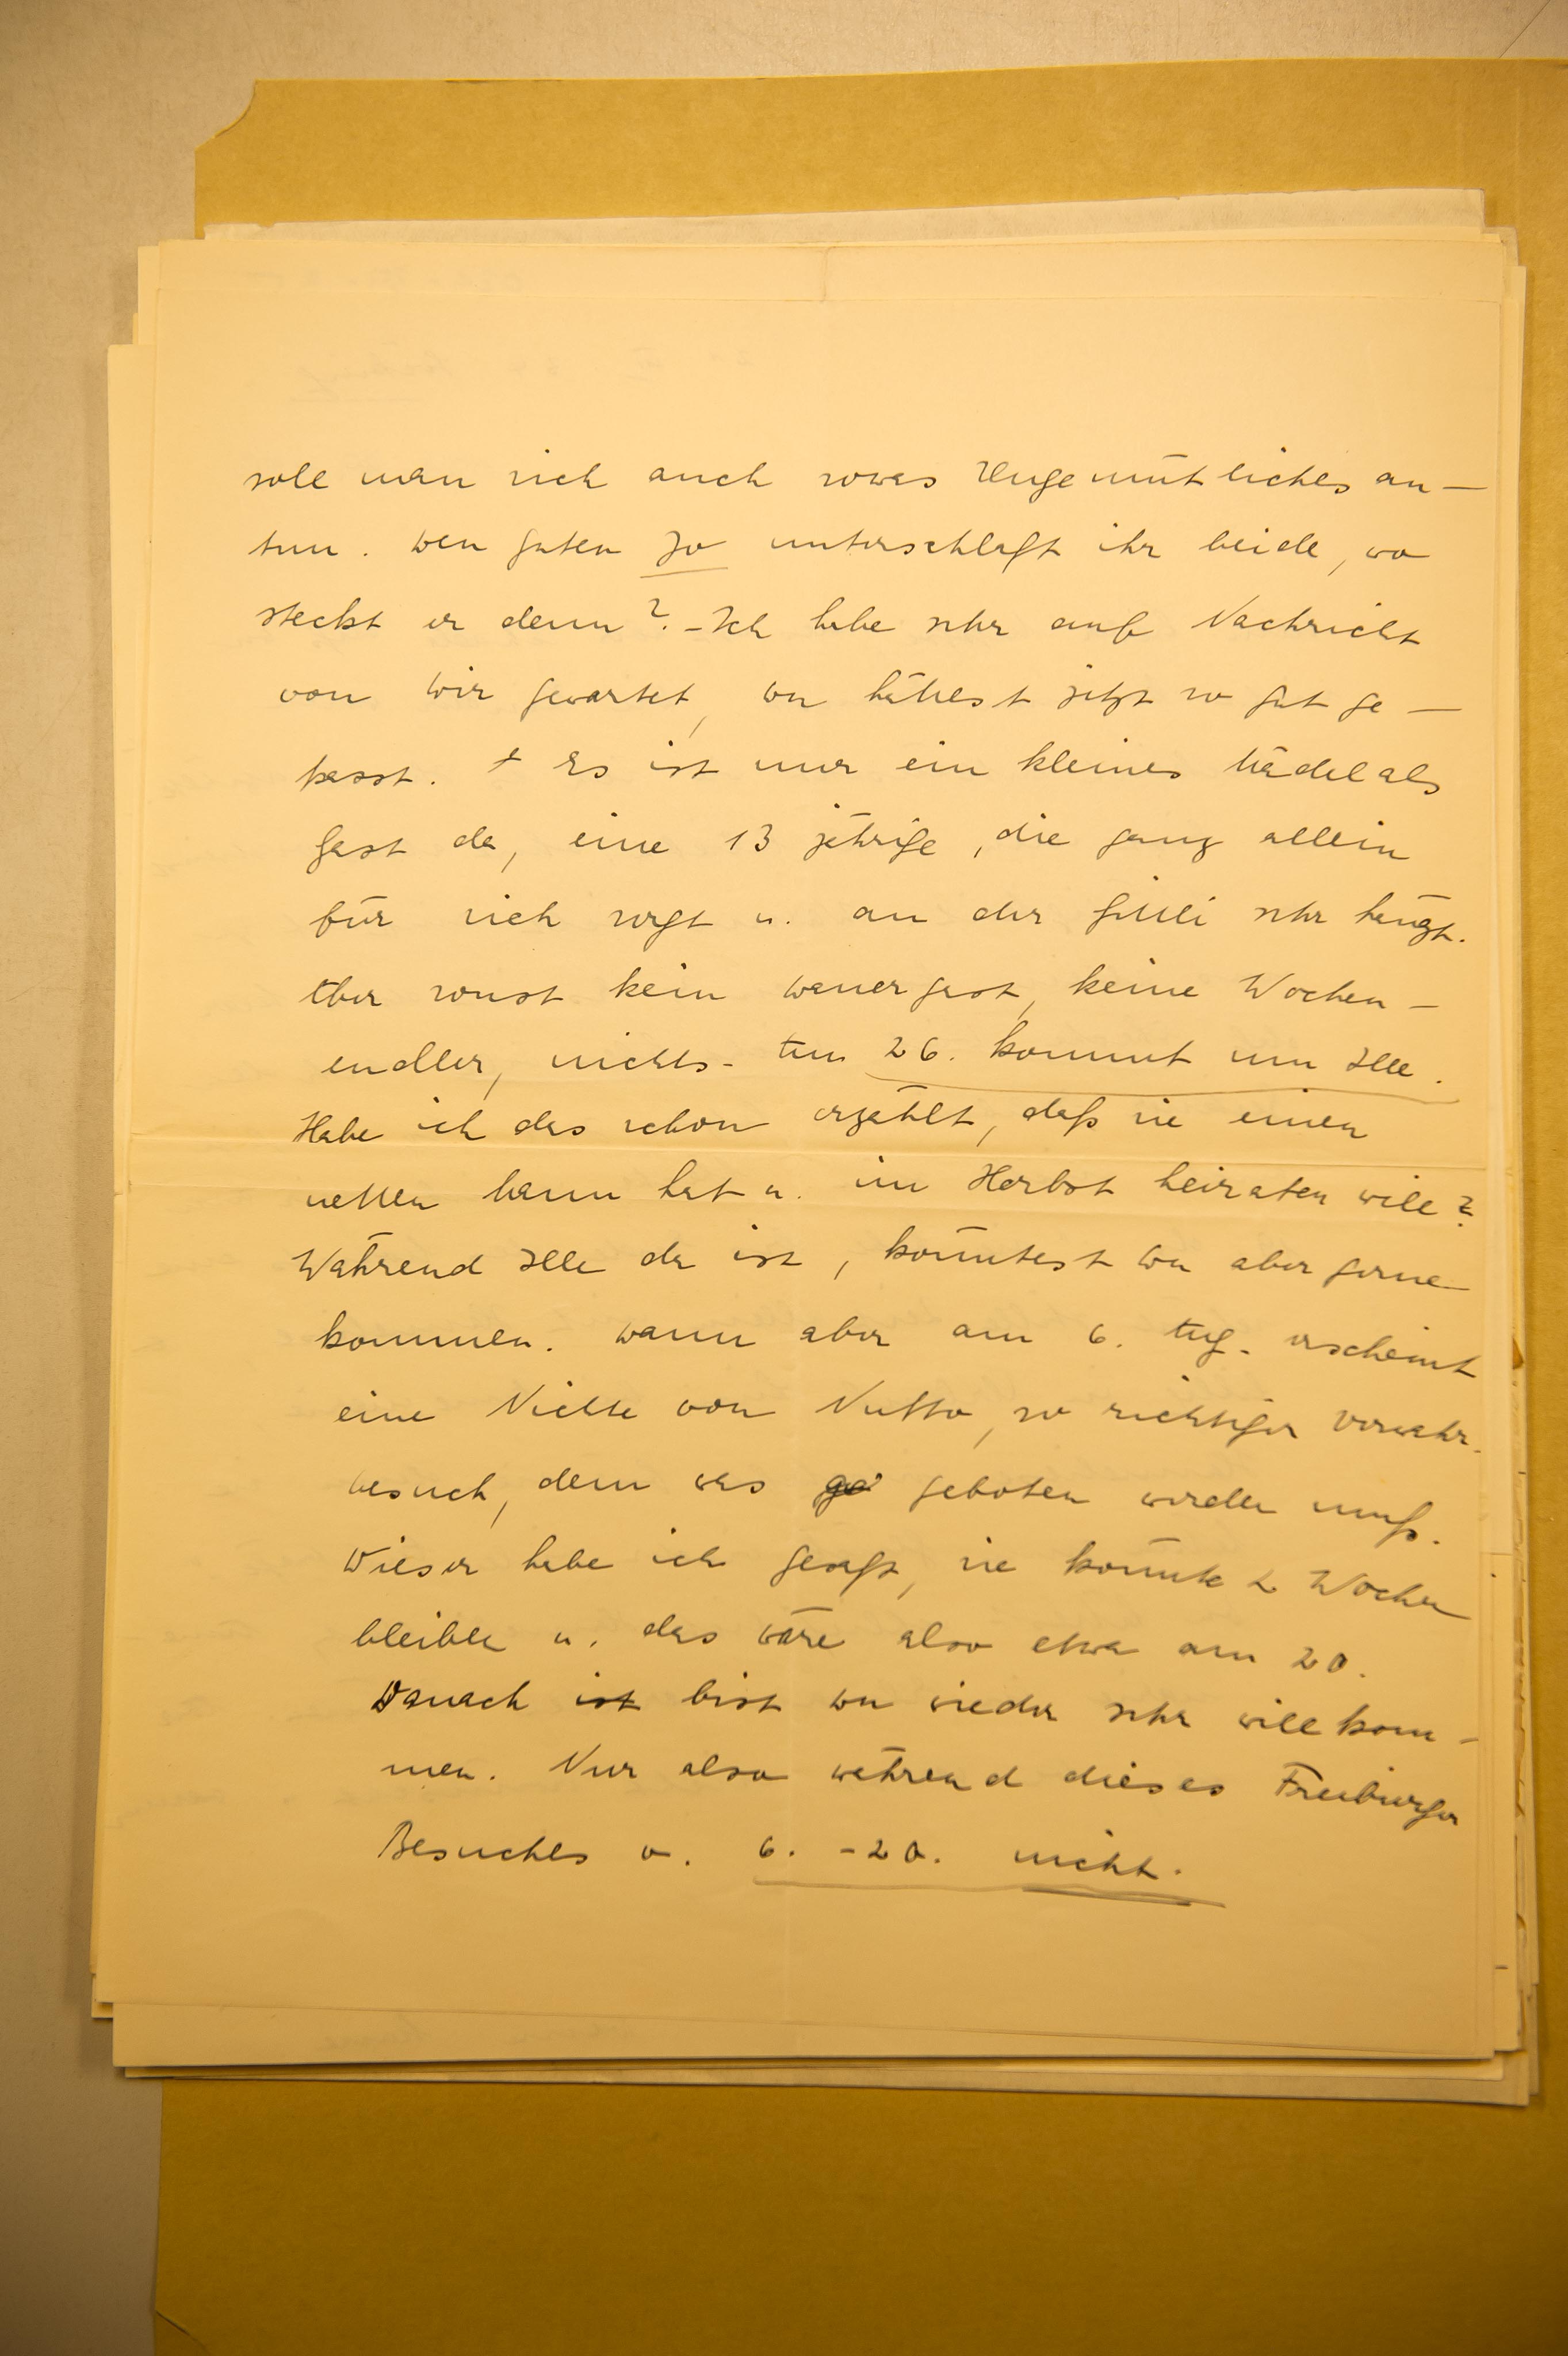 soll man sich auch sowas Ungemütliches an-
tun. Den guten Jo unterschlagt ihr beide, wo
steckt er denn? - Ich habe sehr auf Nachricht
von Dir gewartet, Du hättest jetzt so gut ge-
passt. Es ist nur ein kleines Mädel als
Gast da, eine 13 jährige, die ganz allein
für sich sorgt u. an der Gitti sehr hängt.
Aber sonst kein Dauergast, keine Wochen-
endler, nichts - Am 26. kommt nun Ille.
Habe ich das schon erzählt, daß sie einen
netten Mann hat u. im Herbst heiraten will?
Während Ille da ist, könntest Du aber gerne
kommen. Dann aber am 6. Aug. erscheint
eine Nichte von Nutto, so richtiger Verwahr.
besuch, dem was ge geboten werden muß.
Dieser habe ich gesagt, sie könnte 2 Wochen
bleiben u. das wäre also etwa am 20.
Danach ist bist Du wieder sehr willkom-
men. Nur also während dieses Freiburger
Besuches v. 6. - 20. nicht.